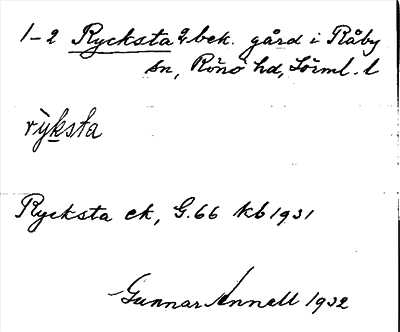 1-2 Rycksta obek. gård i Råby
sn, Rönö hd, Sörml. l
rỳksta
Rycksta ek, G.66 kb 1931
Gunnar Annell 1932